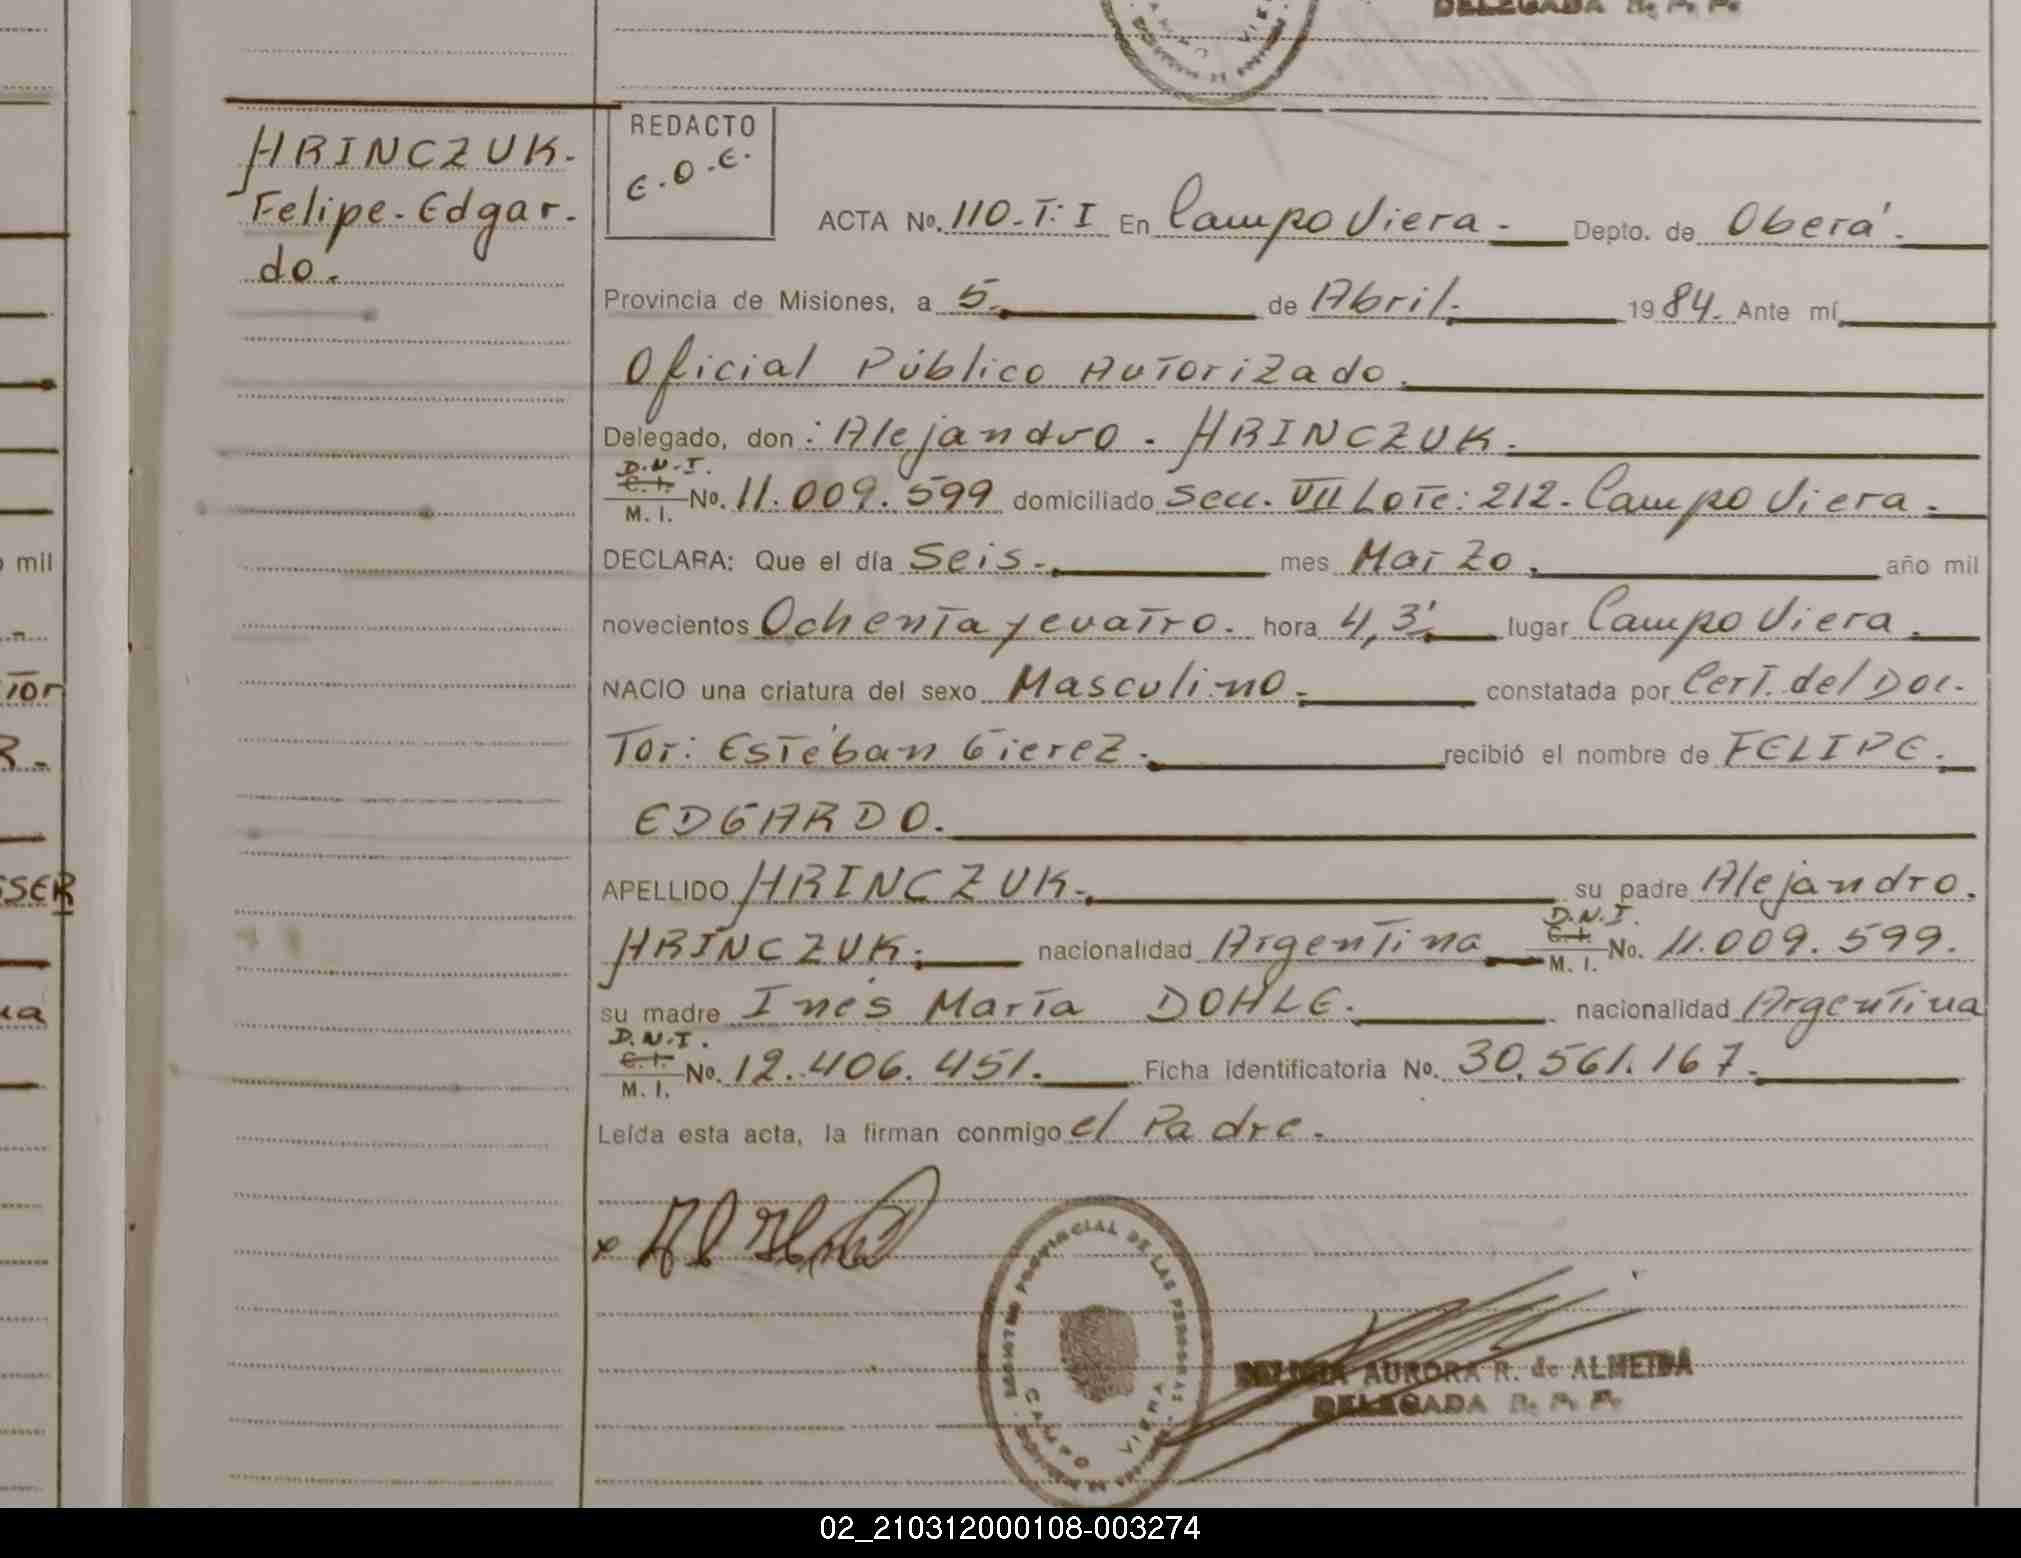 DELEGADA R. P. P.
HRINCZUK.
Felipe. Edgar.
do.
REDACTO
E.O.E.
ACTA No. 110-T: I En Campo Viera. Depto. de Oberá.
Provincia de Misiones, a 5. de Abril. 1984. Ante mí
Oficial Público Autorizado.
Delegado, don: Alejandro. HRINCZUK.
D.N.I.
C.I.
M. I. No. 11.009.599 domiciliado Secc. VII Lote: 212. Campo Viera.
DECLARA: Que el día Seis. mes Marzo. año mil
novecientos Ochenta y cuatro. hora 4,3' lugar Campo Viera.
NACIO una criatura del sexo Masculino. constatada por Cert. del Doc.
Tor: Estéban Gierez. recibió el nombre de FELIPE.
EDGARDO.
APELLIDO HRINCZUK. su padre Alejandro.
HRINCZUK. nacionalidad Argentina D.N.I. C.I. M. I. No. 11.009.599.
su madre Inés María DOHLE. nacionalidad Argentina
D.N.I.
C.I.
M. I. No. 12.406.451. Ficha identificatoria No. 30.561.167.
Leída esta acta, la firman conmigo el Padre.
x
REGISTRO PROVINCIAL DE LAS PERSONAS
CAMPO VIERA
AURORA R. de ALMEIDA
DELEGADA R. P. P.
mil
Tor
R.
SSER
na
02_210312000108-003274